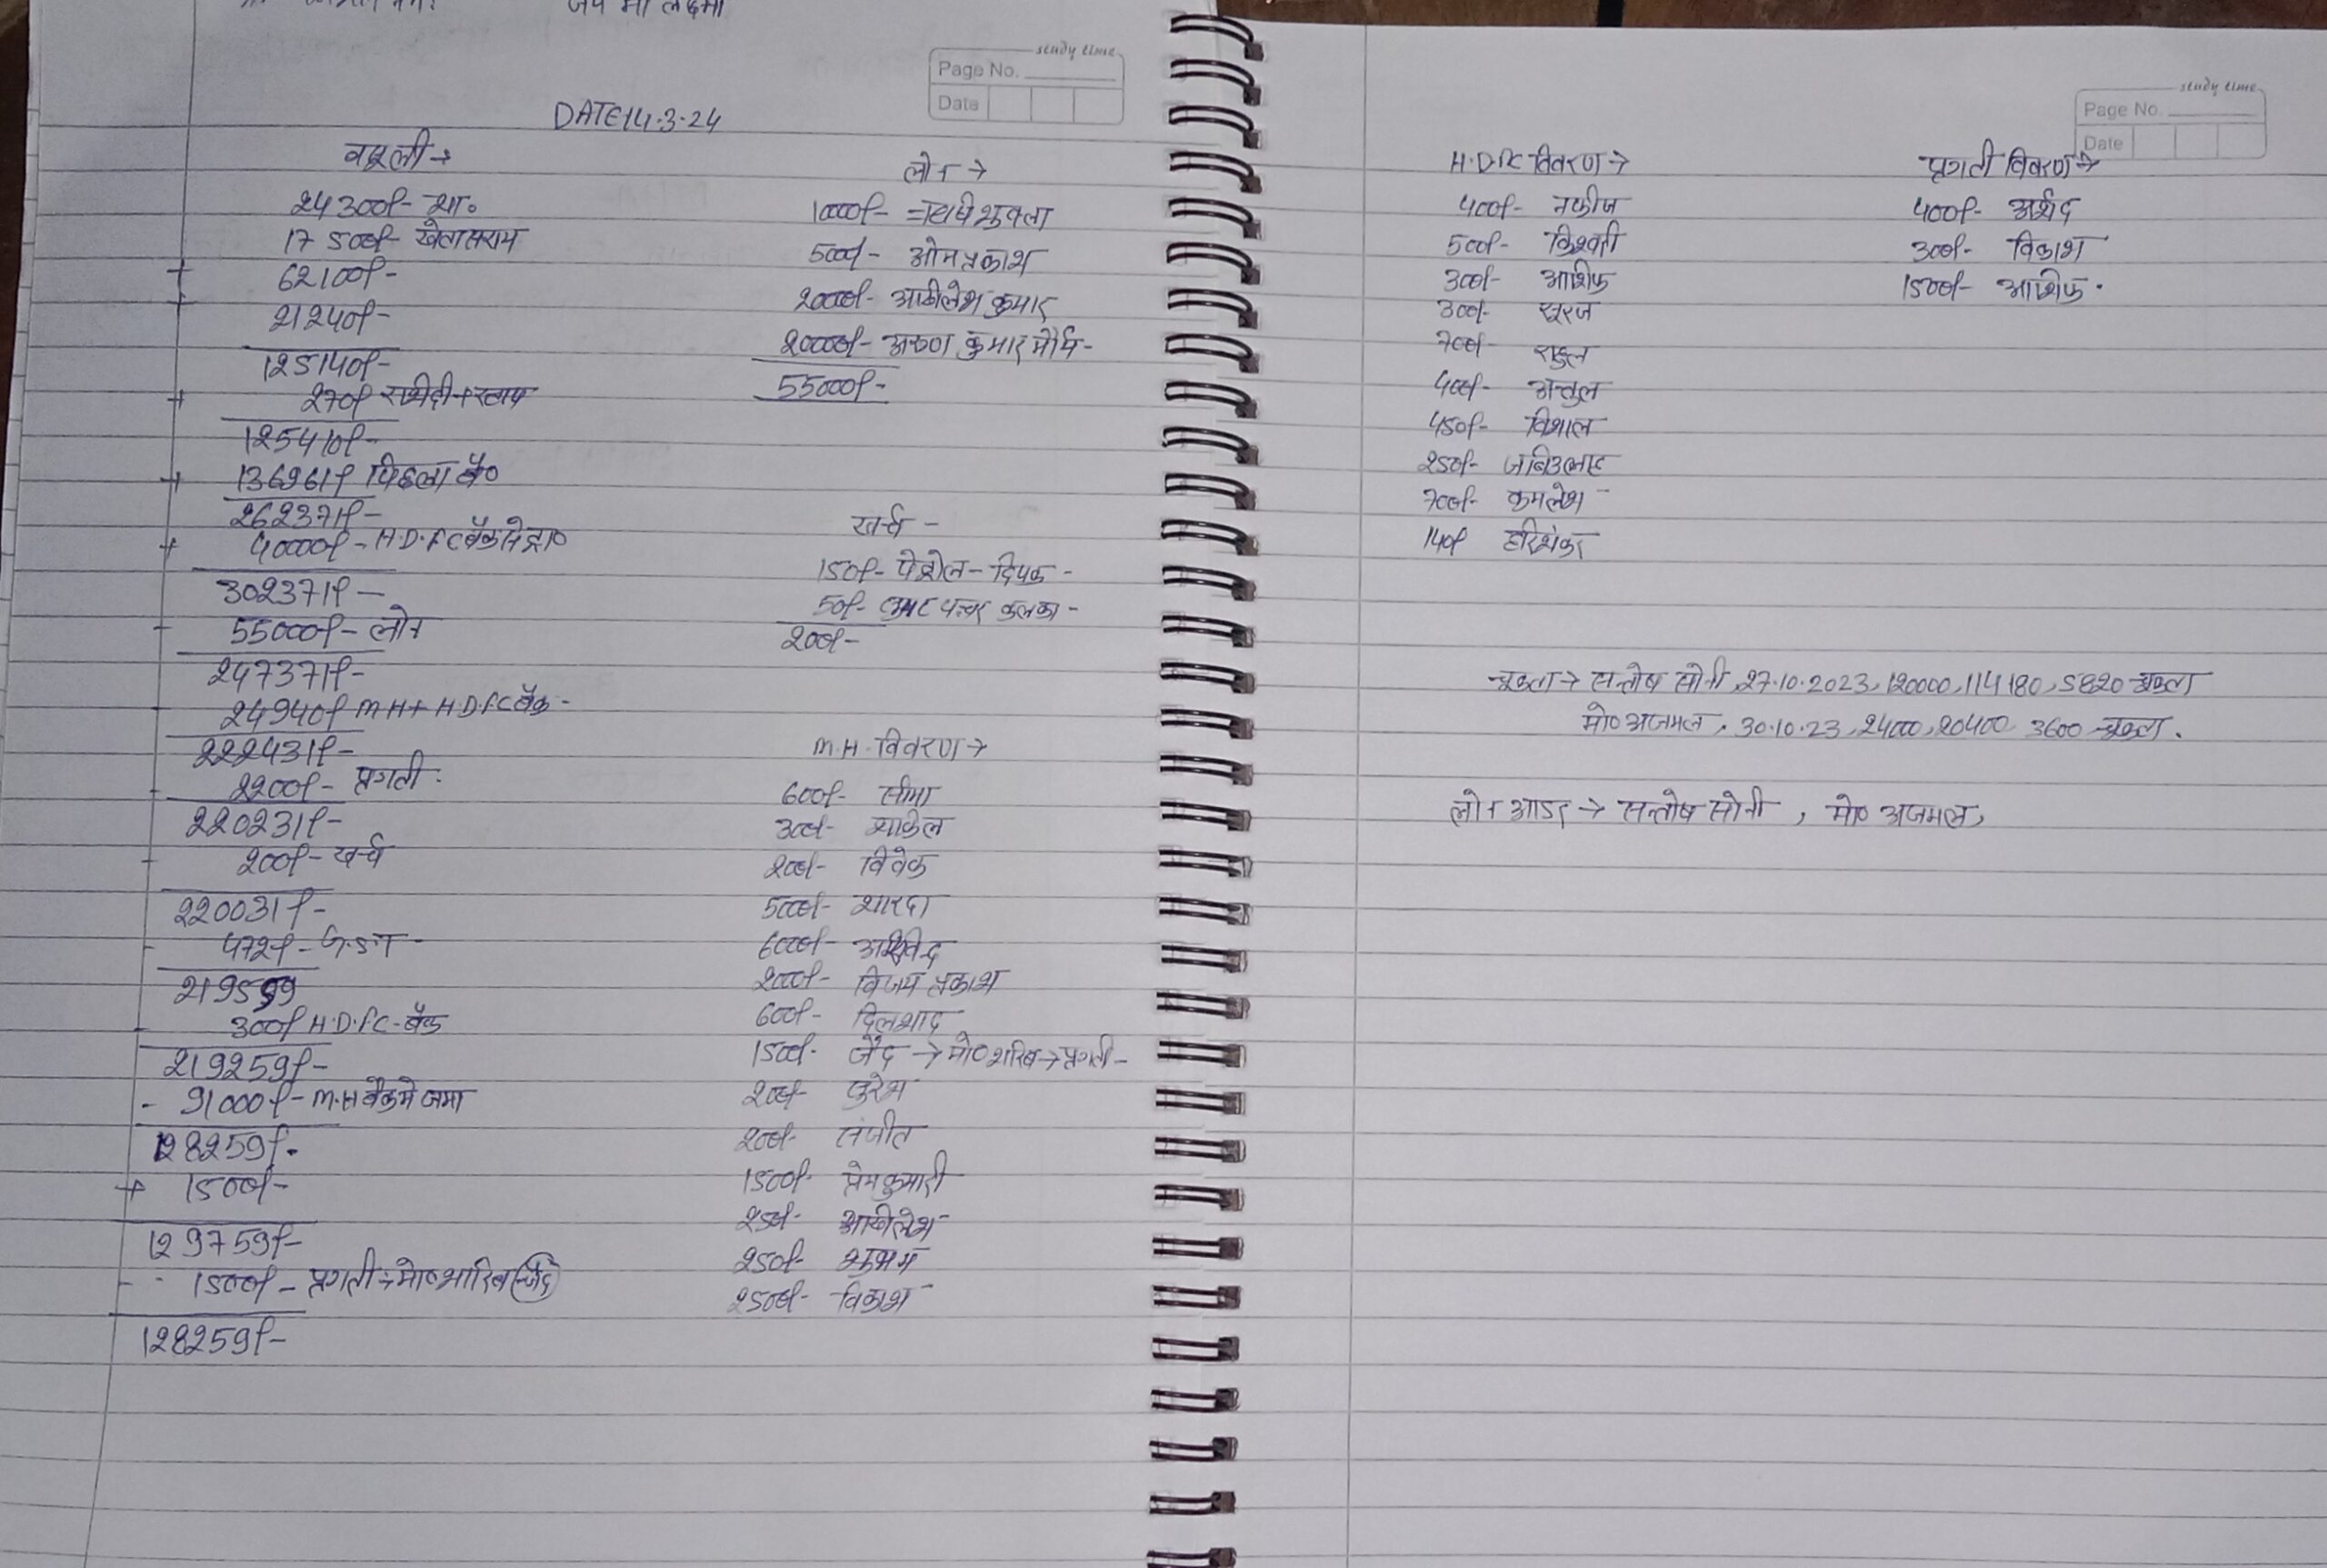 जय माँ लक्ष्मी
study time
Page No.
Date
DATE 14.3.24
वसूली →
24300/- शा०
17500/- खेतासराय
+ 62100/-
+ 21240/-
125140/-
+ 270/ रसीदी+स्टाम्प
125410/-
+ 136961/ पिछला बै०
262371/-
+ 40000/- H.D.F.C बैंक से प्रा०
302371/-
- 55000/- लोन
247371/-
- 24940/ M.H + H.D.F.C बैंक -
222431/-
- 2200/- प्रगती
220231/-
- 200/- खर्च
220031/-
- 472/- G.S.T -
219559
- 300/ H.D.F.C - बैंक
219259/-
- 91000/- M.H बैंक मे जमा
128259/-
+ 1500/-
129759/-
- 1500/- प्रगती → मो० शारिब (जैद)
128259/-
लोन →
10000/- = शुक्ला
5000/- ओमप्रकाश
20000/- अखिलेश कुमार
20000/- अरुण कुमार मौर्य -
55000/-
खर्च -
150/- पेट्रोल - दिपक -
50/- पन्चर
200/-
M.H. विवरण →
600/- सीमा
300/- शकिल
200/- विवेक
5000/- शारदा
6000/- अरविन्द
2000/- विजय प्रकाश
600/- दिलशाद
1500/- जैद → मो० शारिब → प्रगती -
200/- सुरेश
200/- संजीत
1500/- प्रेमकुमारी
250/- अखिलेश
250/- शुभम
2500/- विकाश
study time
Page No.
Date
H.D.F.C विवरण →
400/- नफीज
500/-
300/- आशिफ
300/- सूरज
700/- राहुल
400/- अतुल
450/- विशाल
250/- जबिउल्लाह
700/- कमलेश
140/ हरिशंकर
प्रगती विवरण →
400/- अर्शद
300/- विकाश
1500/- आशिफ.
चुकता → सन्तोष सोनी, 27.10.2023, 120000, 114180, 5820 चुकता
मो० अजमल, 30.10.23, 24000, 20400, 3600 चुकता.
लोन आडर → सन्तोष सोनी, मो० अजमल,